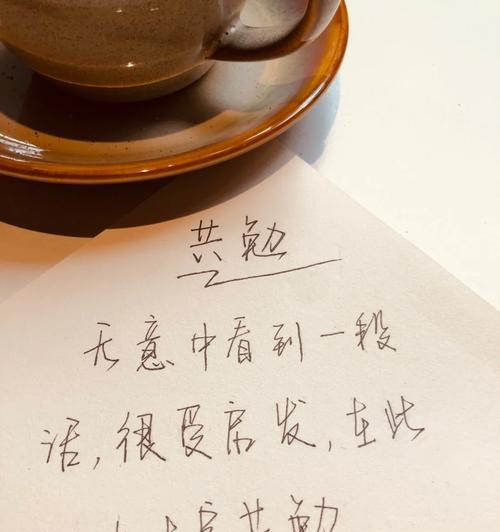 共勉
无意中看到一段
话,很受启发,在此
共勉